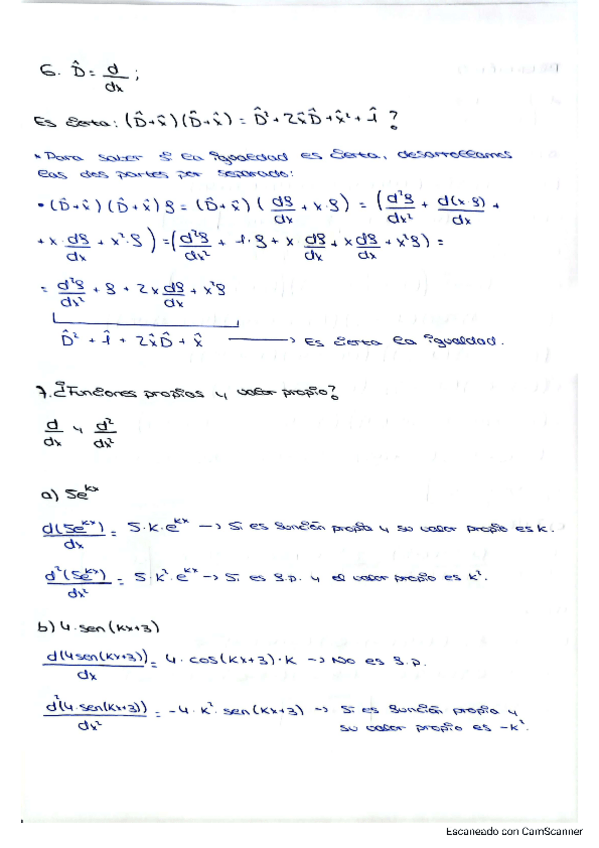 6. D̂ = d/dx ;
Es cierta: (D̂+x̂)(D̂+x̂) = D̂² + 2x̂D̂ + x̂² + 1̂ ?
• Para saber si la igualdad es cierta, desarrollamos
las dos partes por separado:
• (D̂+x̂)(D̂+x̂)f = (D̂+x̂)(df/dx + x·f) = (d²f/dx² + d(x·f)/dx +
+ x·df/dx + x²·f) = (d²f/dx² + 1·f + x·df/dx + x df/dx + x²f) =
= d²f/dx² + f + 2x df/dx + x²f
D̂² + 1̂ + 2x̂D̂ + x̂ → Es cierta la igualdad.
7. ¿Funciones propias y valor propio?
d/dx y d²/dx²
a) 5e^kx
d(5e^kx)/dx = 5·k·e^kx → Si es función propia y su valor propio es k.
d²(5e^kx)/dx² = 5·k²·e^kx → Si es f.p. y el valor propio es k².
b) 4·sen(kx+3)
d(4sen(kx+3))/dx = 4·cos(kx+3)·k → No es f.p.
d²(4·sen(kx+3))/dx² = -4·k²·sen(kx+3) → Si es función propia y
su valor propio es -k².
Escaneado con CamScanner